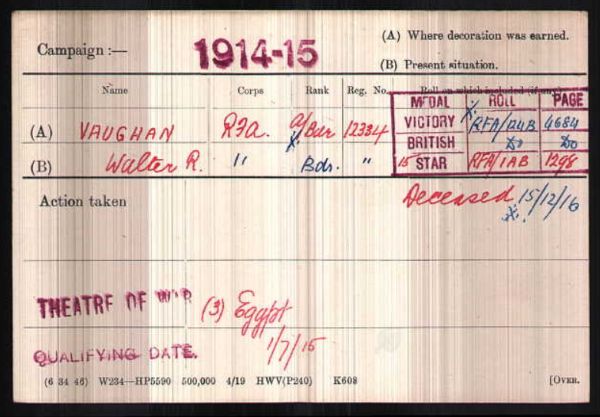 Campaign :—
1914-15
(A) Where decoration was earned.
(B) Present situation.
Name Corps Rank Reg. No. Roll on which included (if any).
MEDAL ROLL PAGE
(A) VAUGHAN R.F.A. A/Bdr 12334
VICTORY RFA/124B 4684
BRITISH Do Do
(B) Walter R. " Bdr. "
15 STAR RFA/1AB 1298
Action taken
Deceased 15/12/16
THEATRE OF WAR (3) Egypt
QUALIFYING DATE. 1/7/15
(6 34 46) W234—HP5590 500,000 4/19 HWV(P240) K608 [OVER.